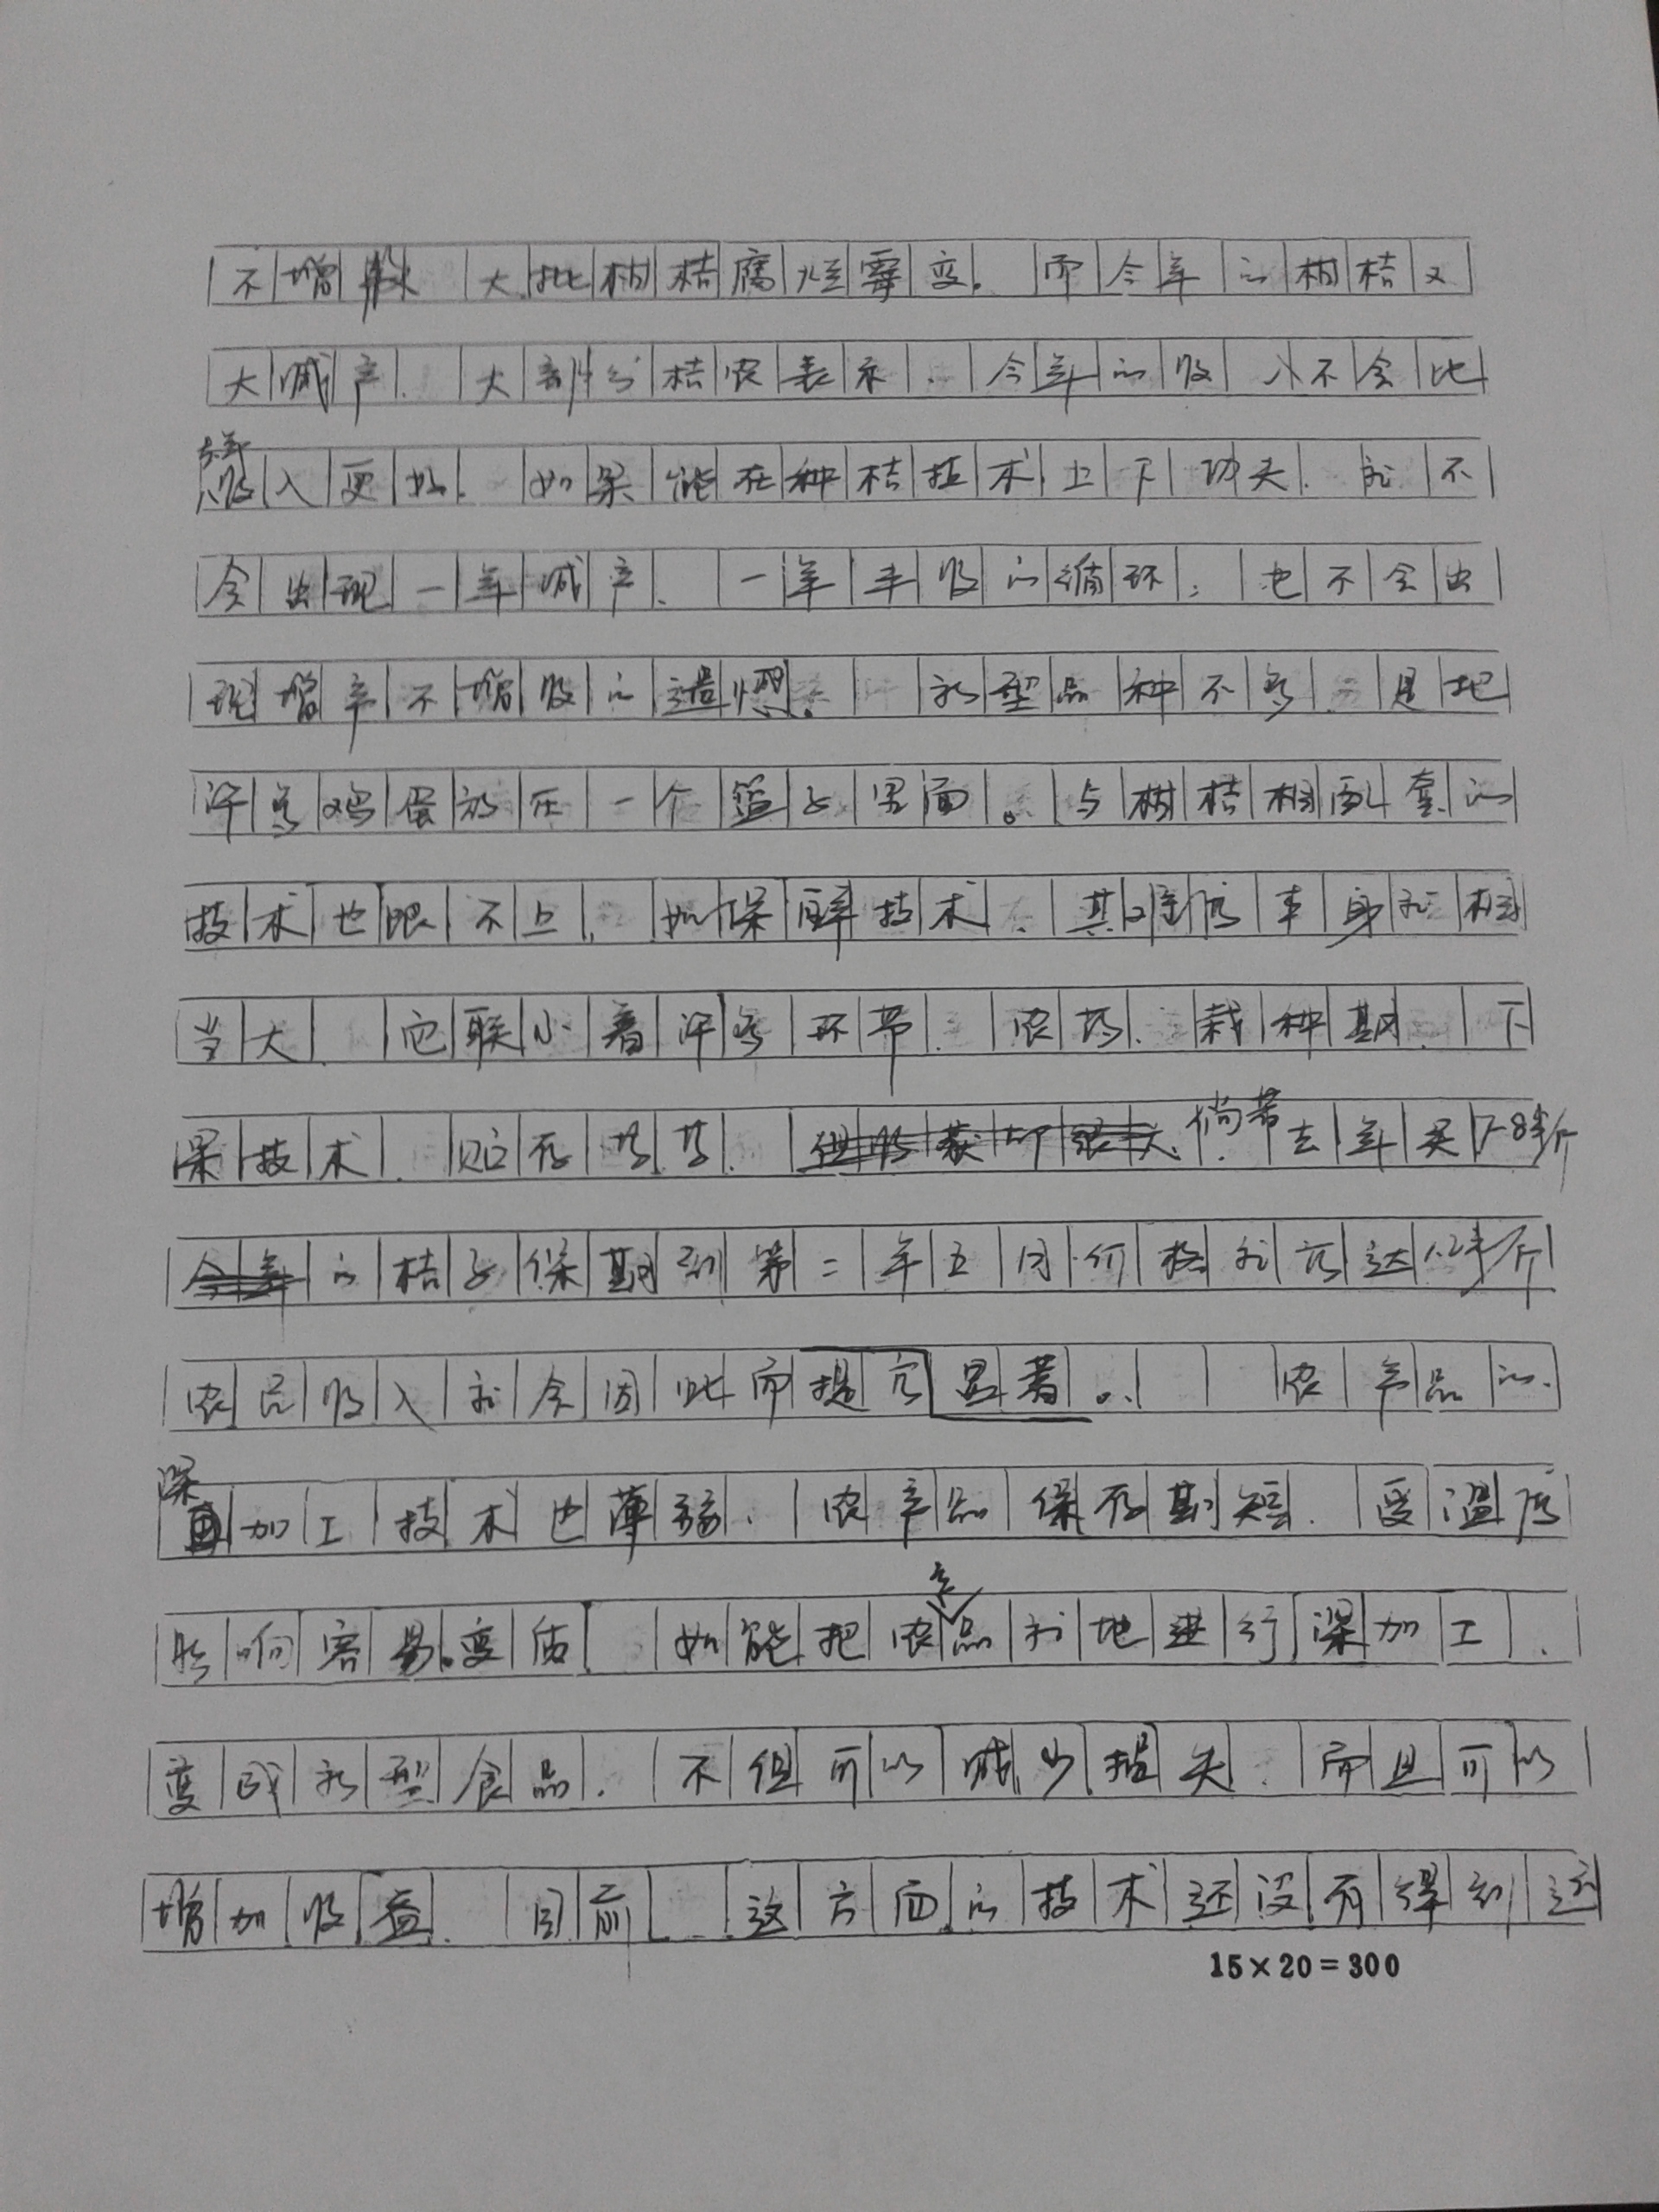 不增收，大批柑桔腐烂霉变。而今年的柑桔又
大减产，大部分桔农表示，今年的收入不会比
去年收入更好。如果能在种桔技术上下功夫，就不
会出现一年减产，一年丰收的循环，也不会出
现增产不增收的遗憾。 新型品种不多，是把
许多鸡蛋放在一个篮子里面。与柑桔相配套的
技术也跟不上，如保鲜技术，其难度本身就相
当大，它联系着许多环节，农药，栽种期，下
果技术，贮存等等，倘若去年买7-8毛/斤
的桔子保期到第二年五月价格就高达1.2元/斤
农民收入就会因此而提高显著。 农产品的
深加工技术也薄弱，农产品保存期短，受温度
影响容易变质，如能把农产品就地进行深加工，
变成新型食品，不但可以减少损失，而且可以
增加收益，目前，这方面的技术还没有得到运
15×20=300